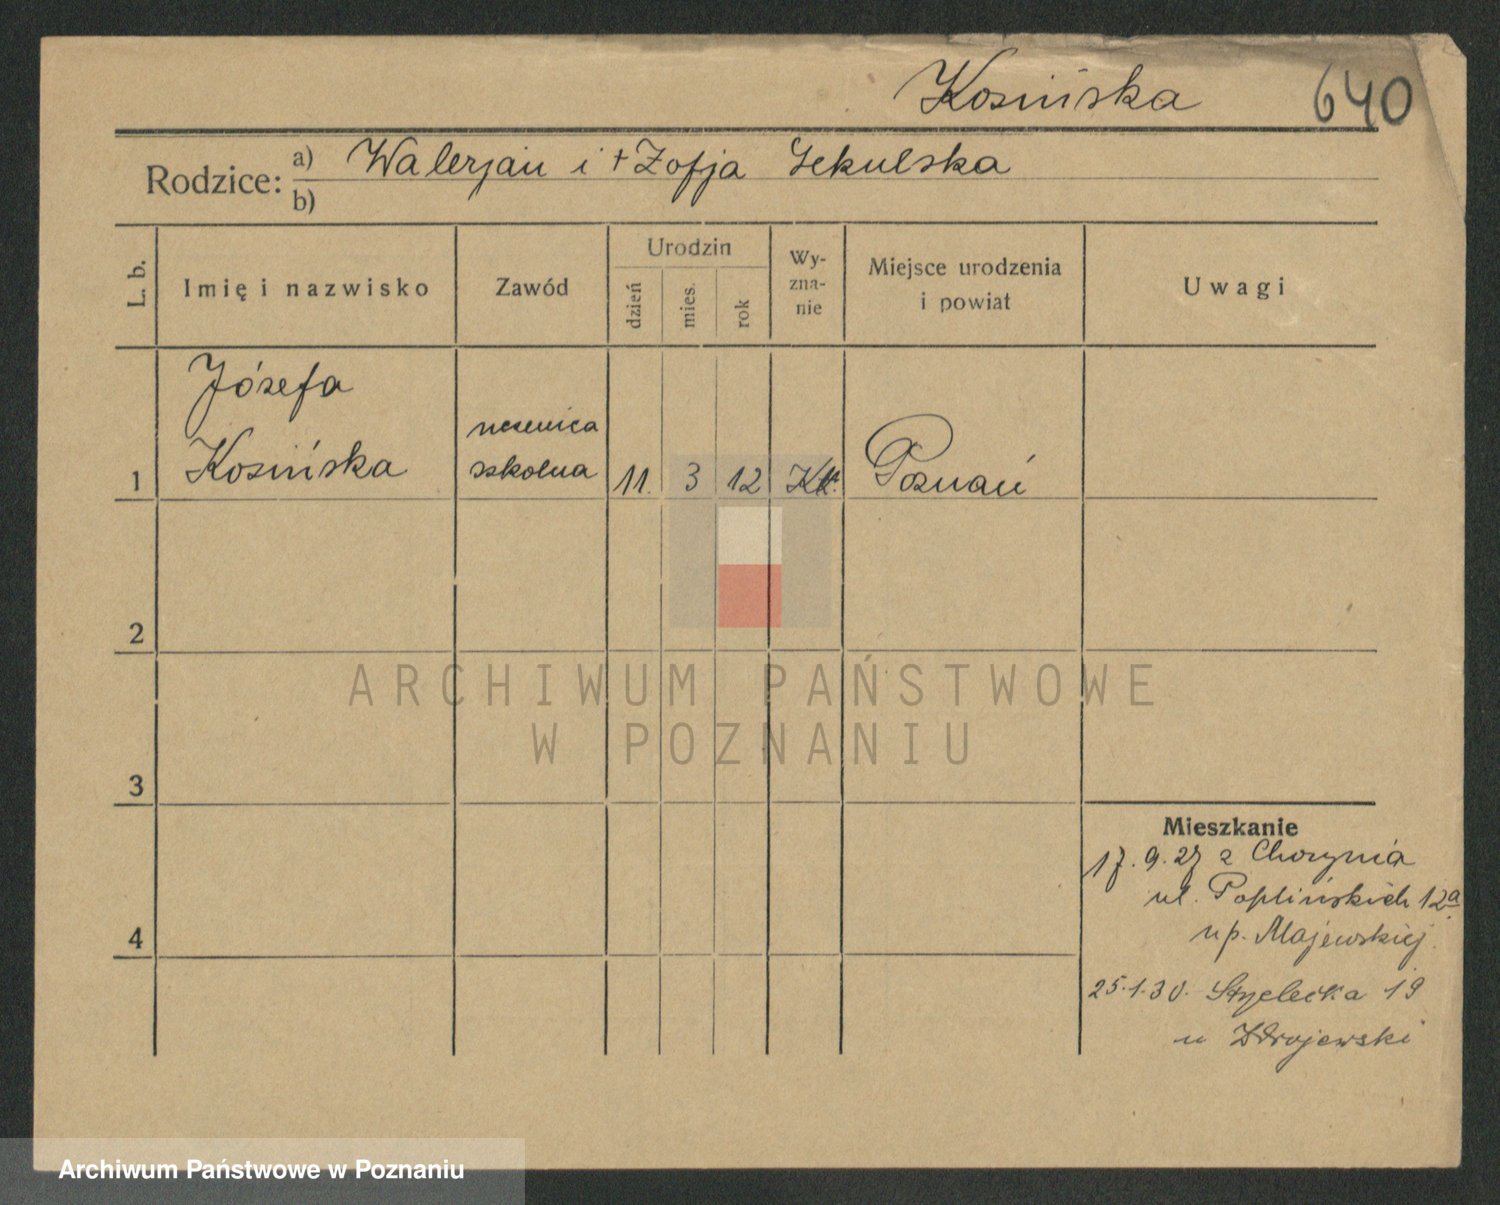 Kosińska 640
Rodzice: a) Walerjan i + Zofja Sekulska
b)
L. b.
Imię i nazwisko
Zawód
Urodzin
dzień
mies.
rok
Wy-
zna-
nie
Miejsce urodzenia
i powiat
Uwagi
Józefa
uczenica
1 Kosińska szkolna 11. 3 12 Kt. Poznań
2
ARCHIWUM PAŃSTWOWE
W POZNANIU
3
Mieszkanie
17.9.27 z Chorynia
ul. Poplińskich 12a
4
u p. Majewskiej.
25.1.30. Strzelecka 19
u Zdrojewski
Archiwum Państwowe w Poznaniu